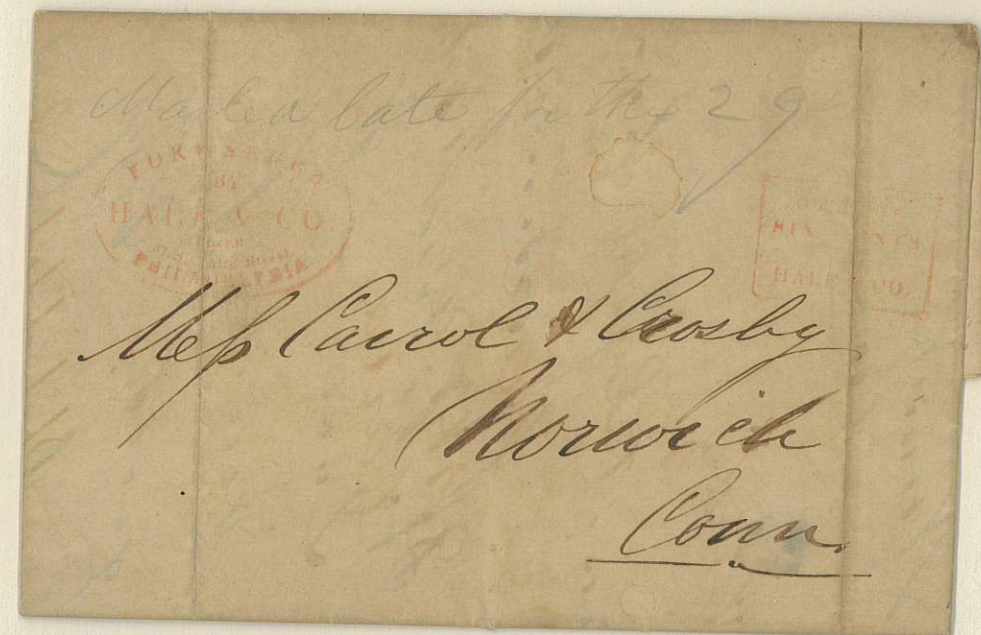 Mailed late for the 29
FORWARDED
BY
HALE & CO.
FROM
PHILADELPHIA
SIX CENTS
HALE & CO.
Mess Carrol & Crosby
Norwich
Conn.